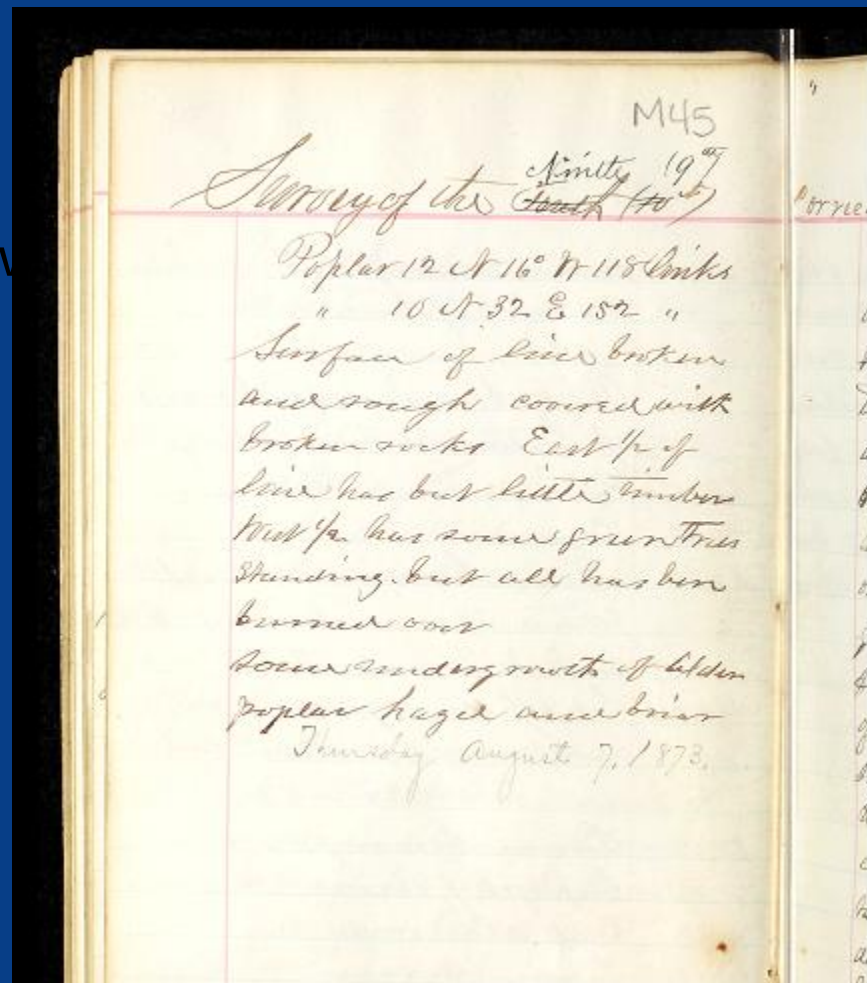 M45
Ninth (9th)
Survey of the Tenth (10th)
Poplar 12 N 16° W 118 links
" 10 N 32 E 152 "
Surface of line broken
and rough covered with
broken rocks East 1/2 of
line has but little timber
West 1/2 has some green trees
standing. but all has ben
burned over
some undergrowth of Alder
poplar hazel and briar
Thursday August 7, 1873.